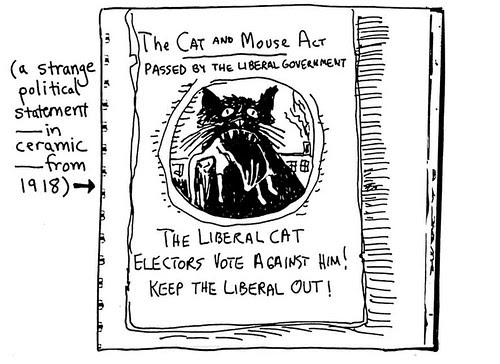 The CAT AND MOUSE ACT
PASSED BY THE LIBERAL GOVERNMENT
(a strange
political
statement
—in
ceramic
—from
1918)
THE LIBERAL CAT
ELECTORS VOTE AGAINST HIM!
KEEP THE LIBERAL OUT!